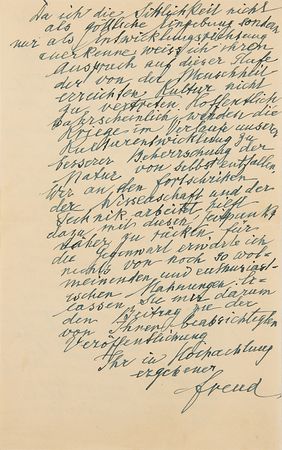 Da ich die Sittlichkeit nicht
als göttliche Eingebung sondern
nur als Entwicklungsrichtung
anerkenne weiss ich ihren
Anspruch auf dieser Stufe
der von der Menschheit
erreichten Kultur nicht
zu vertreten. Hoffentlich
wahrscheinlich werden die
Kriege im Verlaufe unserer
Kulturentwicklung zu
besserer Beherrschung der
Natur von selbst entfallen
Wer an den fortschritten
der Wissenschaft und der
Technik arbeitet hilft
dazu mit diesen Zeitpunkt
näher zu rücken für
die Gegenwart erwarte ich
nichts von noch so wol-
meinenden und enthusiast-
ischen Mahnungen. Er-
lassen Sie mir darum
den Beitrag zu der
von Ihnen beabsichtigten
Veröffentlichung
Ihr in Hochachtung
ergebener
Freud